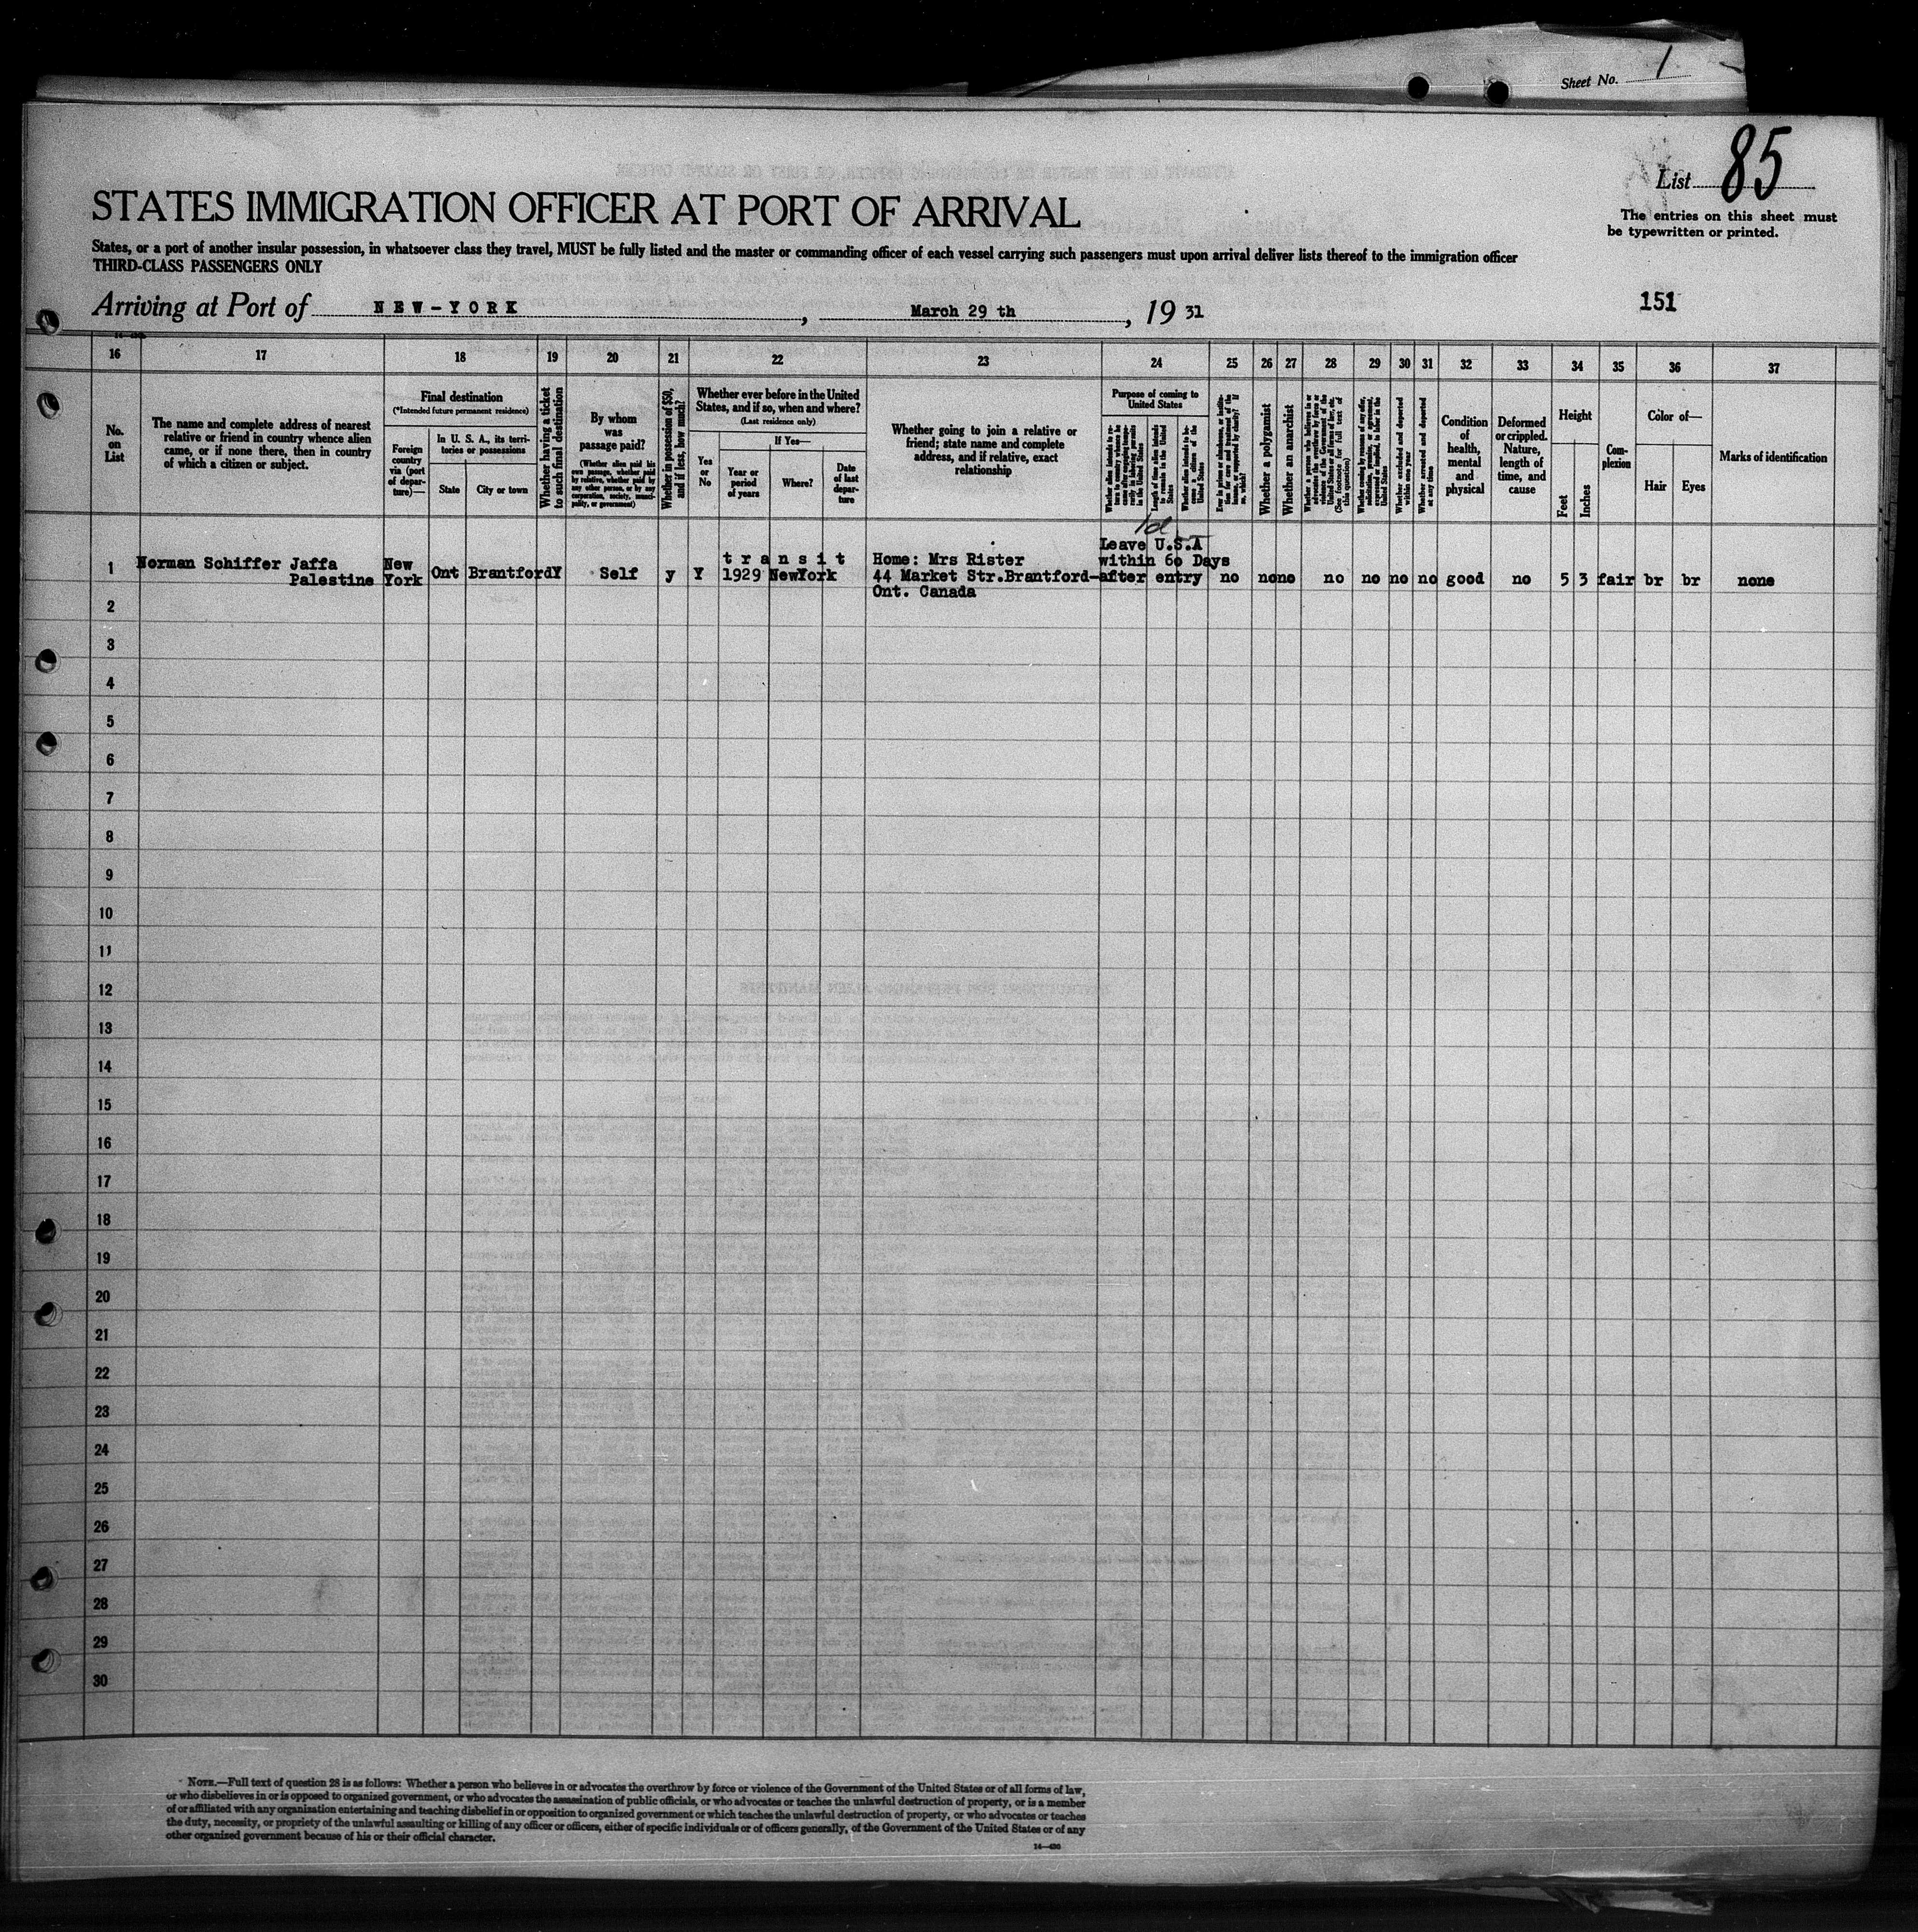 Sheet No. 1
List 85
The entries on this sheet must
be typewritten or printed.
STATES IMMIGRATION OFFICER AT PORT OF ARRIVAL
States, or a port of another insular possession, in whatsoever class they travel, MUST be fully listed and the master or commanding officer of each vessel carrying such passengers must upon arrival deliver lists thereof to the immigration officer
THIRD-CLASS PASSENGERS ONLY
Arriving at Port of NEW-YORK, March 29 th, 19 31
151
16 17 18 19 20 21 22 23 24 25 26 27 28 29 30 31 32 33 34 35 36 37
No.
on
List
The name and complete address of nearest
relative or friend in country whence alien
came, or if none there, then in country
of which a citizen or subject.
Final destination
(*Intended future permanent residence)
Foreign
country
via (port
of depar-
ture)—
In U. S. A., its terri-
tories or possessions
State
City or town
Whether having a ticket
to such final destination
By whom
was
passage paid?
(Whether alien paid his
own passage, whether paid
by relative, whether paid by
any other person, or by any
corporation, society, munici-
pality, or government)
Whether in possession of $50,
and if less, how much?
Whether ever before in the United
States, and if so, when and where?
(Last residence only)
Yes
or
No
If Yes—
Year or
period
of years
Where?
Date
of last
depar-
ture
Whether going to join a relative or
friend; state name and complete
address, and if relative, exact
relationship
Purpose of coming to
United States
Length of time alien intends
to remain in the United
States
Whether alien intends to be-
come a citizen of the
United States
Whether a polygamist
Whether an anarchist
(See footnote for full text of
this question)
Whether excluded and deported
within one year
Whether arrested and deported
at any time
Condition
of
health,
mental
and
physical
Deformed
or crippled.
Nature,
length of
time, and
cause
Height
Feet
Inches
Com-
plexion
Color of—
Hair
Eyes
Marks of identification
1 Norman Schiffer Jaffa
Palestine
New
York
Ont
Brantford
Y
Self
y
Y
transit
1929 NewYork
Home: Mrs Rister
44 Market Str.Brantford-
Ont. Canada
Leave U.S.A
within 60 Days
after entry
no none no no no no good no 5 3 fair br br none
2
3
4
5
6
7
8
9
10
11
12
13
14
15
16
17
18
19
20
21
22
23
24
25
26
27
28
29
30
NOTE.—Full text of question 28 is as follows: Whether a person who believes in or advocates the overthrow by force or violence of the Government of the United States or of all forms of law,
or who disbelieves in or is opposed to organized government, or who advocates the assassination of public officials, or who advocates or teaches the unlawful destruction of property, or is a member
of or affiliated with any organization entertaining and teaching disbelief in or opposition to organized government or which teaches the unlawful destruction of property, or who advocates or teaches
the duty, necessity, or propriety of the unlawful assaulting or killing of any officer or officers, either of specific individuals or of officers generally, of the Government of the United States or of any
other organized government because of his or their official character.